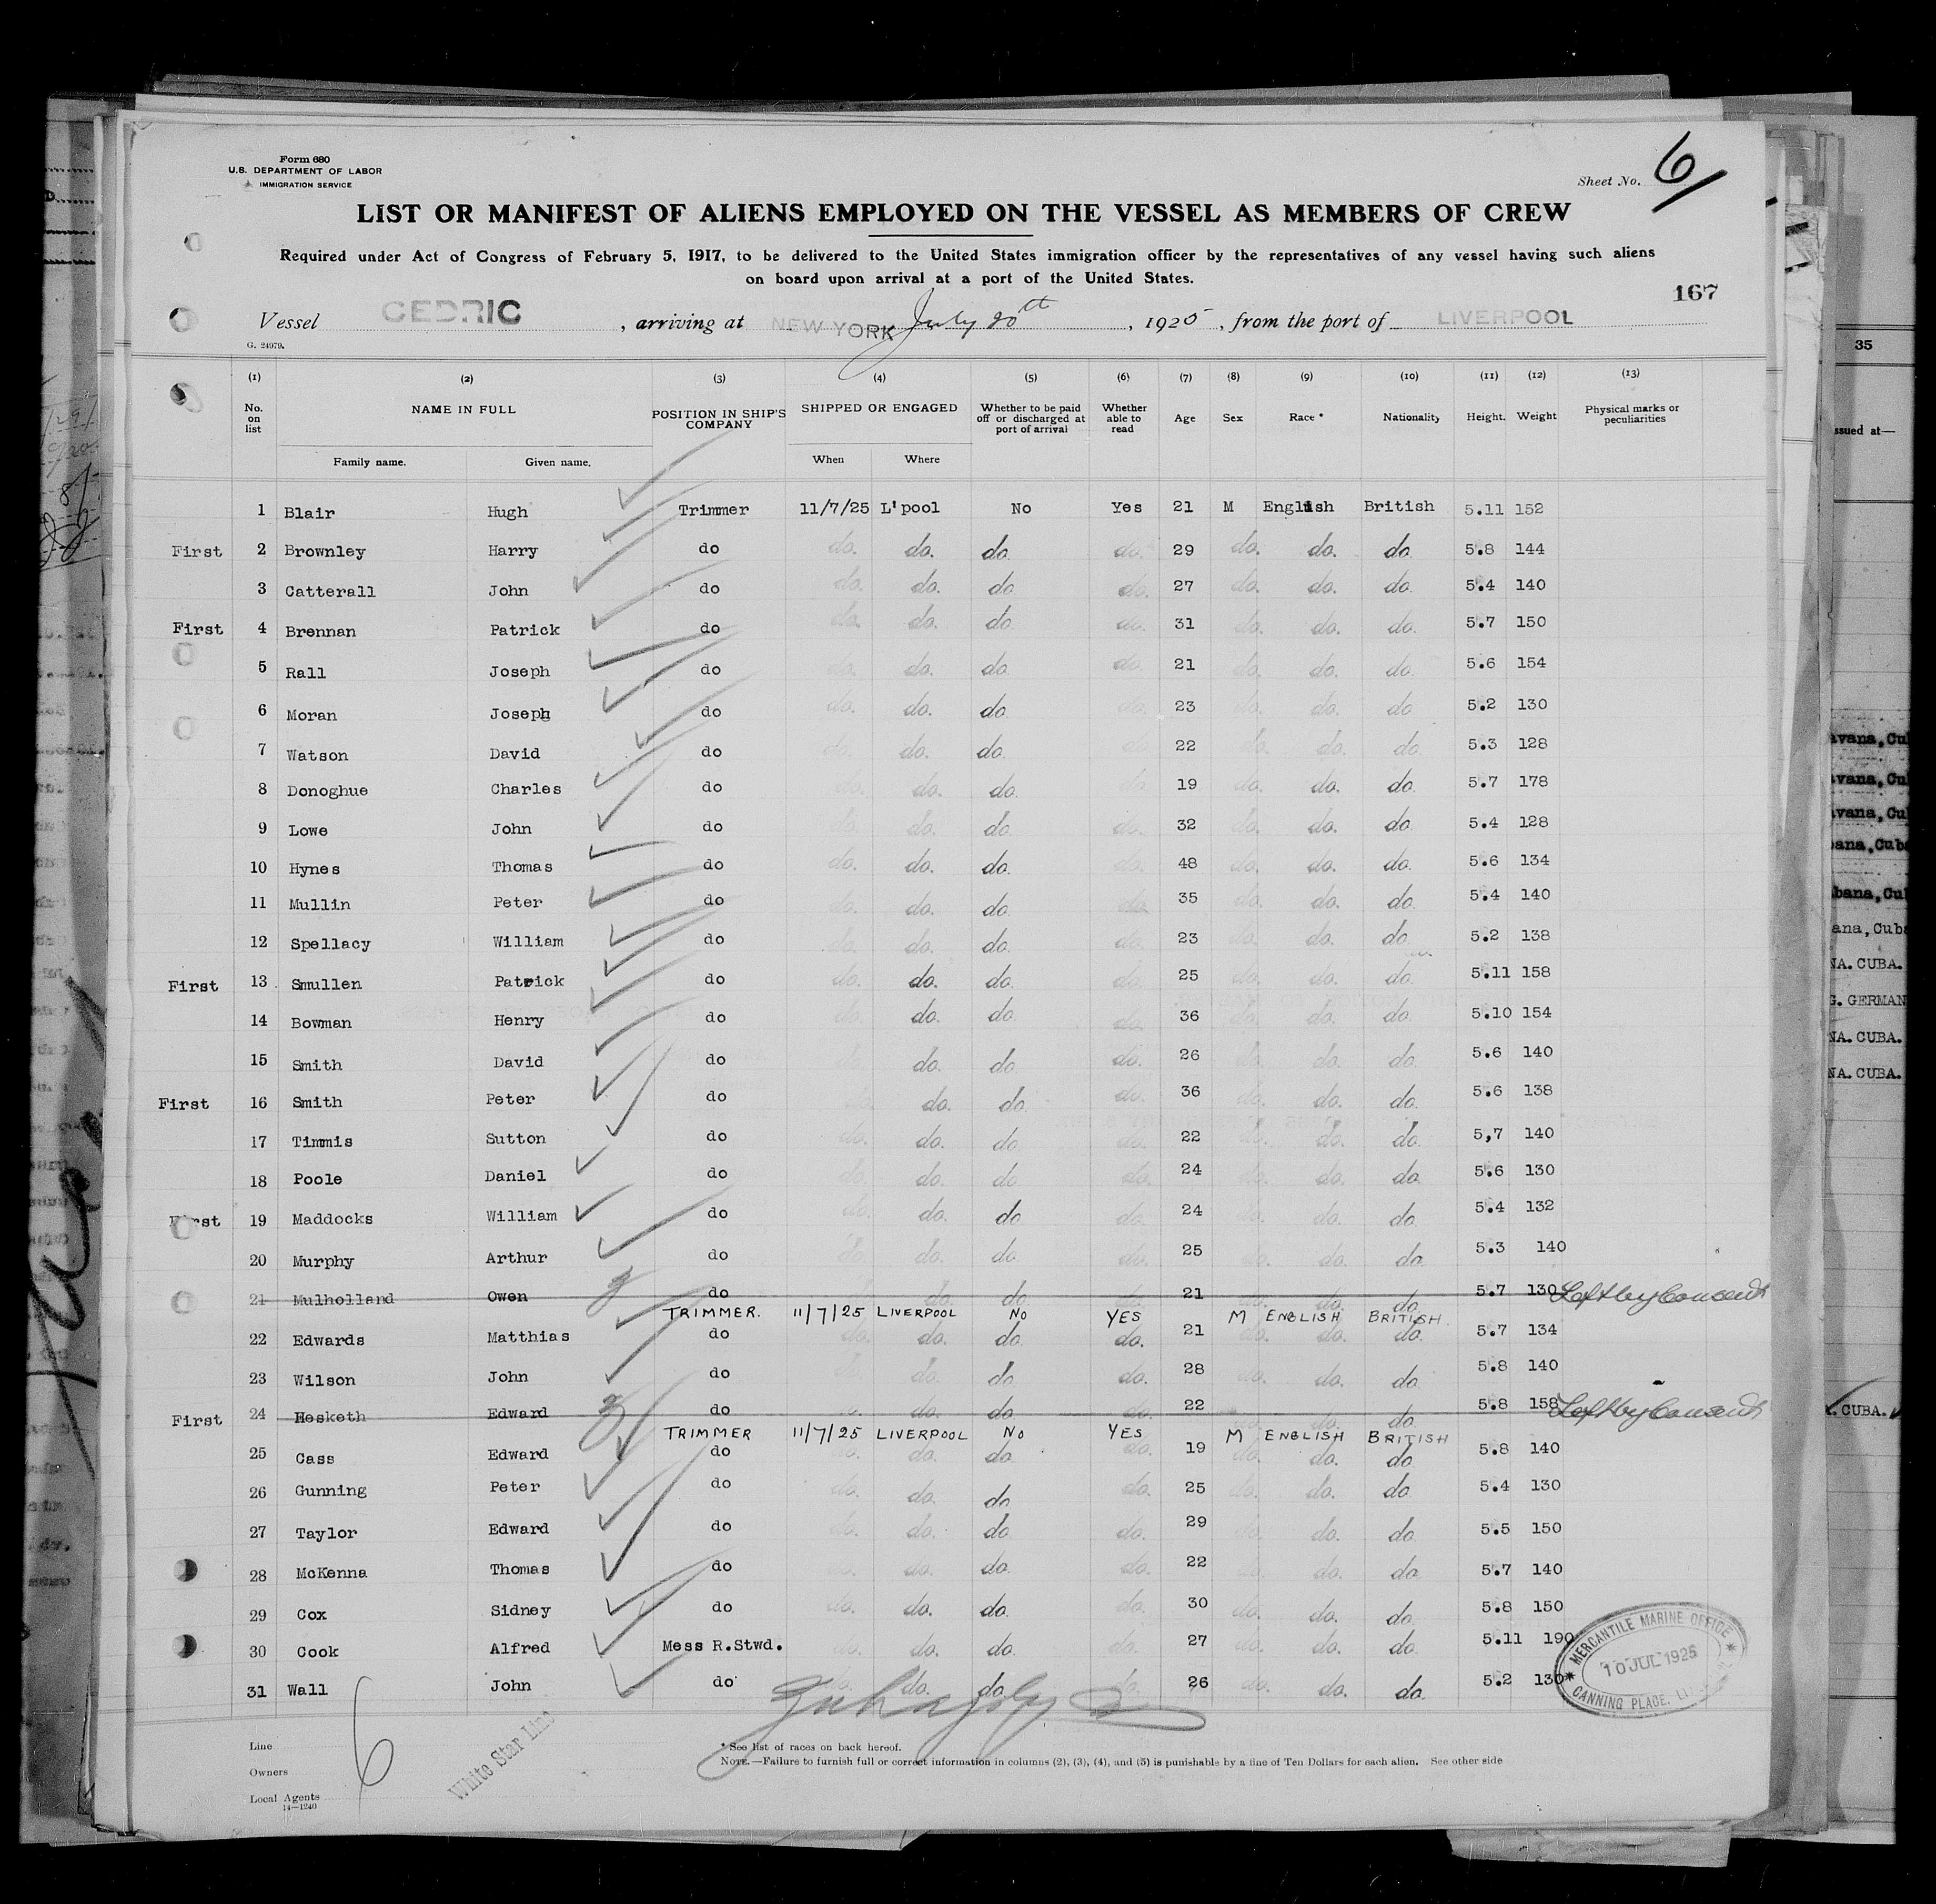 Form 680
U.S. DEPARTMENT OF LABOR
IMMIGRATION SERVICE
Sheet No. 6
LIST OR MANIFEST OF ALIENS EMPLOYED ON THE VESSEL AS MEMBERS OF CREW
Required under Act of Congress of February 5, 1917, to be delivered to the United States immigration officer by the representatives of any vessel having such aliens
on board upon arrival at a port of the United States.
167
Vessel CEDRIC , arriving at NEW YORK July 20th , 1925 , from the port of LIVERPOOL
G. 24979.
(1) (2) (3) (4) (5) (6) (7) (8) (9) (10) (11) (12) (13)
No. on list NAME IN FULL POSITION IN SHIP'S COMPANY SHIPPED OR ENGAGED Whether to be paid off or discharged at port of arrival Whether able to read Age Sex Race * Nationality Height. Weight Physical marks or peculiarities
Family name. Given name. When Where
1 Blair Hugh Trimmer 11/7/25 L'pool No Yes 21 M English British 5.11 152
First 2 Brownley Harry do do. do. do. do. 29 do. do. do. 5.8 144
3 Catterall John do do. do. do. do. 27 do. do. do. 5.4 140
First 4 Brennan Patrick do do. do. do. do. 31 do. do. do. 5.7 150
5 Rall Joseph do do. do. do. do. 21 do. do. do. 5.6 154
6 Moran Joseph do do. do. do. do. 23 do. do. do. 5.2 130
7 Watson David do do. do. do. do. 22 do. do. do. 5.3 128
8 Donoghue Charles do do. do. do. do. 19 do. do. do. 5.7 178
9 Lowe John do do. do. do. do. 32 do. do. do. 5.4 128
10 Hynes Thomas do do. do. do. do. 48 do. do. do. 5.6 134
11 Mullin Peter do do. do. do. do. 35 do. do. do. 5.4 140
12 Spellacy William do do. do. do. do. 23 do. do. do. 5.2 138
First 13 Smullen Patrick do do. do. do. do. 25 do. do. do. 5.11 158
14 Bowman Henry do do. do. do. do. 36 do. do. do. 5.10 154
15 Smith David do do. do. do. 26 do. do. do. 5.6 140
First 16 Smith Peter do do. do. do. do. 36 do. do. do. 5.6 138
17 Timmis Sutton do do. do. do. do. 22 do. do. do. 5,7 140
18 Poole Daniel do do. do. do. do. 24 do. do. do. 5.6 130
First 19 Maddocks William do do. do. do. do. 24 do. do. do. 5.4 132
20 Murphy Arthur do do. do. do. do. 25 do. do. do. 5.3 140
21 Mulholland Owen do do. do. do. 21 do. do. do. 5.7 130 Left by Consent
TRIMMER. 11/7/25 LIVERPOOL NO YES M ENGLISH BRITISH.
22 Edwards Matthias do do. do. do. do. 21 do. do. do. 5.7 134
23 Wilson John do do. do. do. do. 28 do. do. do. 5.8 140
First 24 Hesketh Edward do do. do. do. do. 22 do. do. do. 5.8 158 Left by Consent
TRIMMER 11/7/25 LIVERPOOL NO YES M ENGLISH BRITISH
25 Cass Edward do do. do. do. do. 19 do. do. do. 5.8 140
26 Gunning Peter do do. do. do. do. 25 do. do. do. 5.4 130
27 Taylor Edward do do. do. do. do. 29 do. do. do. 5.5 150
28 McKenna Thomas do do. do. do. do. 22 do. do. do. 5.7 140
29 Cox Sidney do do. do. do. do. 30 do. do. do. 5.8 150
30 Cook Alfred Mess R.Stwd. do. do. do. do. 27 do. do. do. 5.11 190
31 Wall John do do. do. do. do. 26 do. do. do. 5.2 130
MERCANTILE MARINE OFFICE
10 JUL 1925
CANNING PLACE,
Line
Owners
Local Agents
14—1240
6
White Star Line
* See list of races on back hereof.
NOTE.—Failure to furnish full or correct information in columns (2), (3), (4), and (5) is punishable by a fine of Ten Dollars for each alien. See other side
35
ssued at—
NA. CUBA.
G. GERMAN
NA. CUBA.
NA. CUBA.
CUBA.